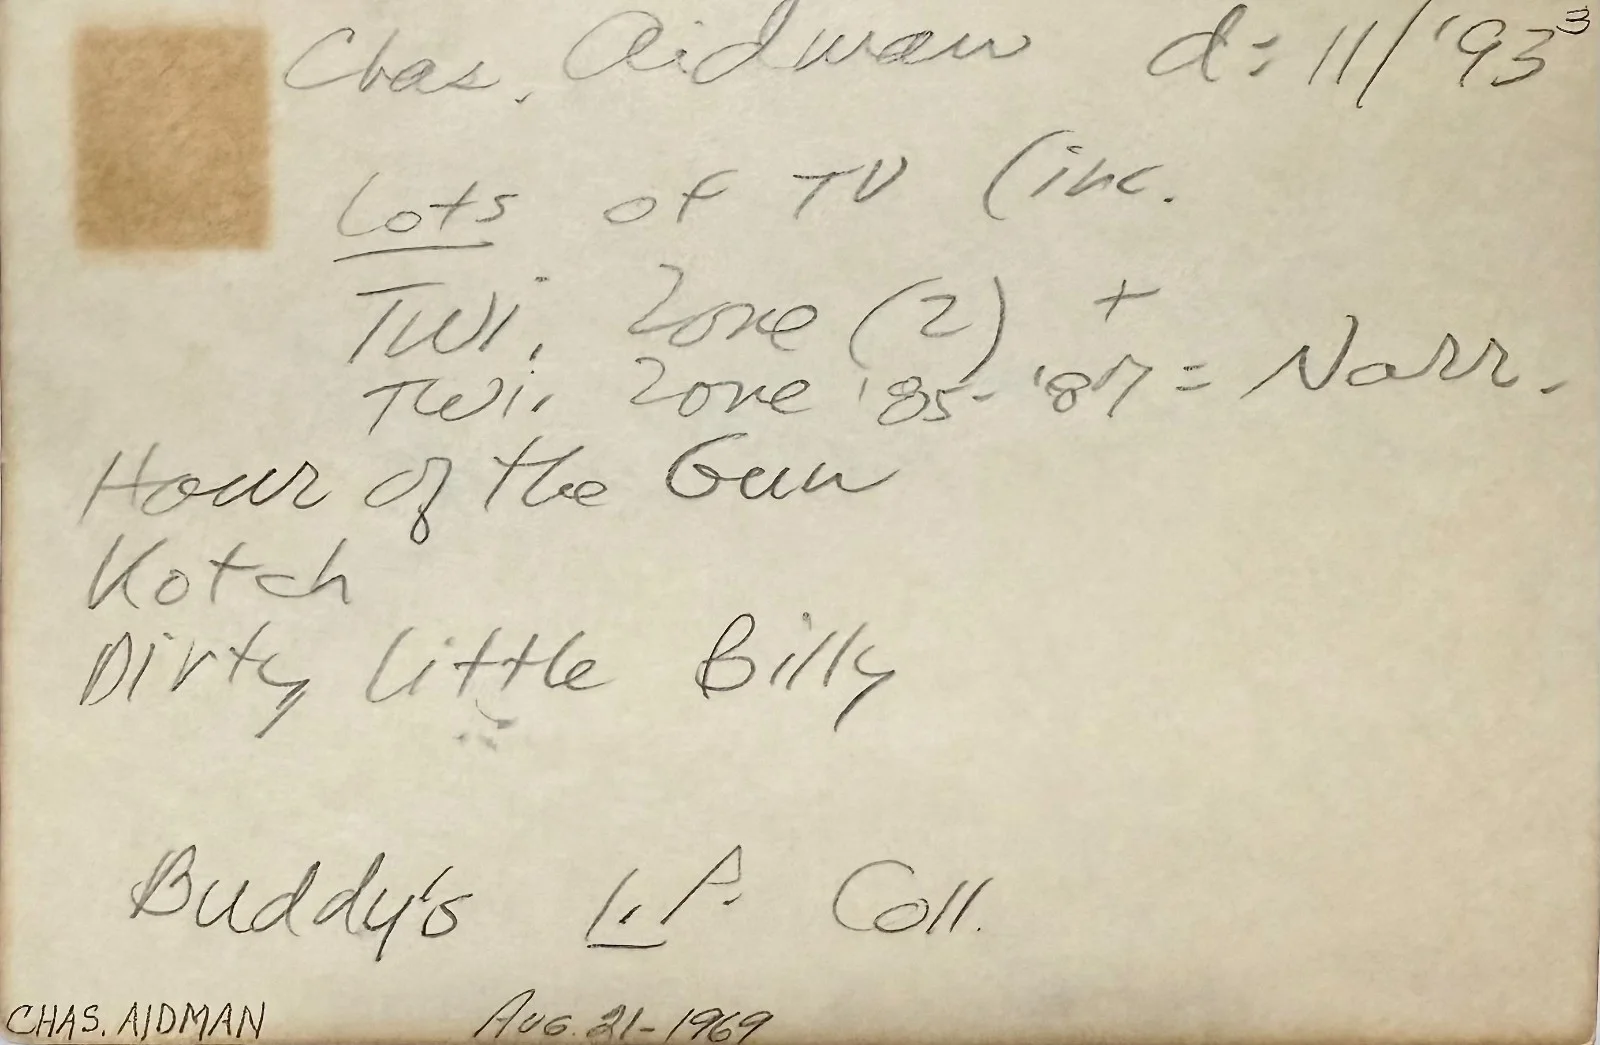 Chas. Aidman d: 11/'93³
Lots of TV (inc.
Twi. Zone (2) +
Twi. Zone '85-'87 = Narr.
Hour of the Gun
Kotch
Dirty Little Billy
Buddy's Coll.
CHAS. AIDMAN Aug. 21-1969